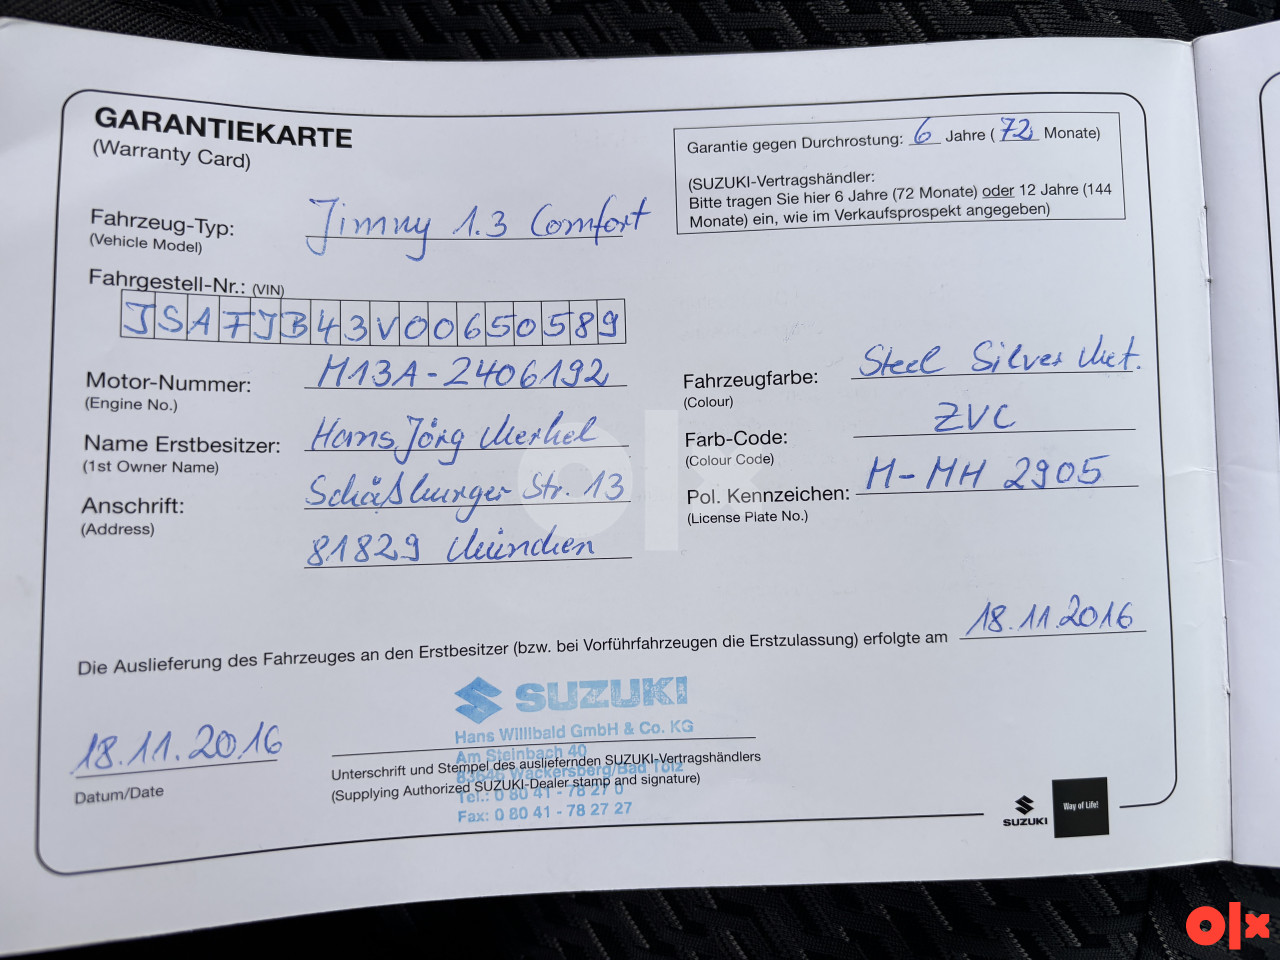 GARANTIEKARTE
(Warranty Card)
Garantie gegen Durchrostung: 6 Jahre (72 Monate)
(SUZUKI-Vertragshändler:
Bitte tragen Sie hier 6 Jahre (72 Monate) oder 12 Jahre (144
Monate) ein, wie im Verkaufsprospekt angegeben)
Fahrzeug-Typ: Jimny 1.3 Comfort
(Vehicle Model)
Fahrgestell-Nr.: (VIN)
JSAFJB43V00650589
Motor-Nummer: M13A-2406192
(Engine No.)
Name Erstbesitzer: Hans Jörg Merkel
(1st Owner Name)
Anschrift: Schäßburger Str. 13
(Address)
81829 München
Fahrzeugfarbe: Steel Silver Met.
(Colour)
Farb-Code: ZVC
(Colour Code)
Pol. Kennzeichen: M-MH 2905
(License Plate No.)
olx
Die Auslieferung des Fahrzeuges an den Erstbesitzer (bzw. bei Vorführfahrzeugen die Erstzulassung) erfolgte am 18.11.2016
SUZUKI
Hans Willibald GmbH & Co. KG
Am Steinbach 40
83646 Wackersberg/Bad Tölz
Tel.: 0 80 41 - 78 27 0
Fax: 0 80 41 - 78 27 27
18.11.2016
Datum/Date
Unterschrift und Stempel des ausliefernden SUZUKI-Vertragshändlers
(Supplying Authorized SUZUKI-Dealer stamp and signature)
SUZUKI
Way of Life!
olx